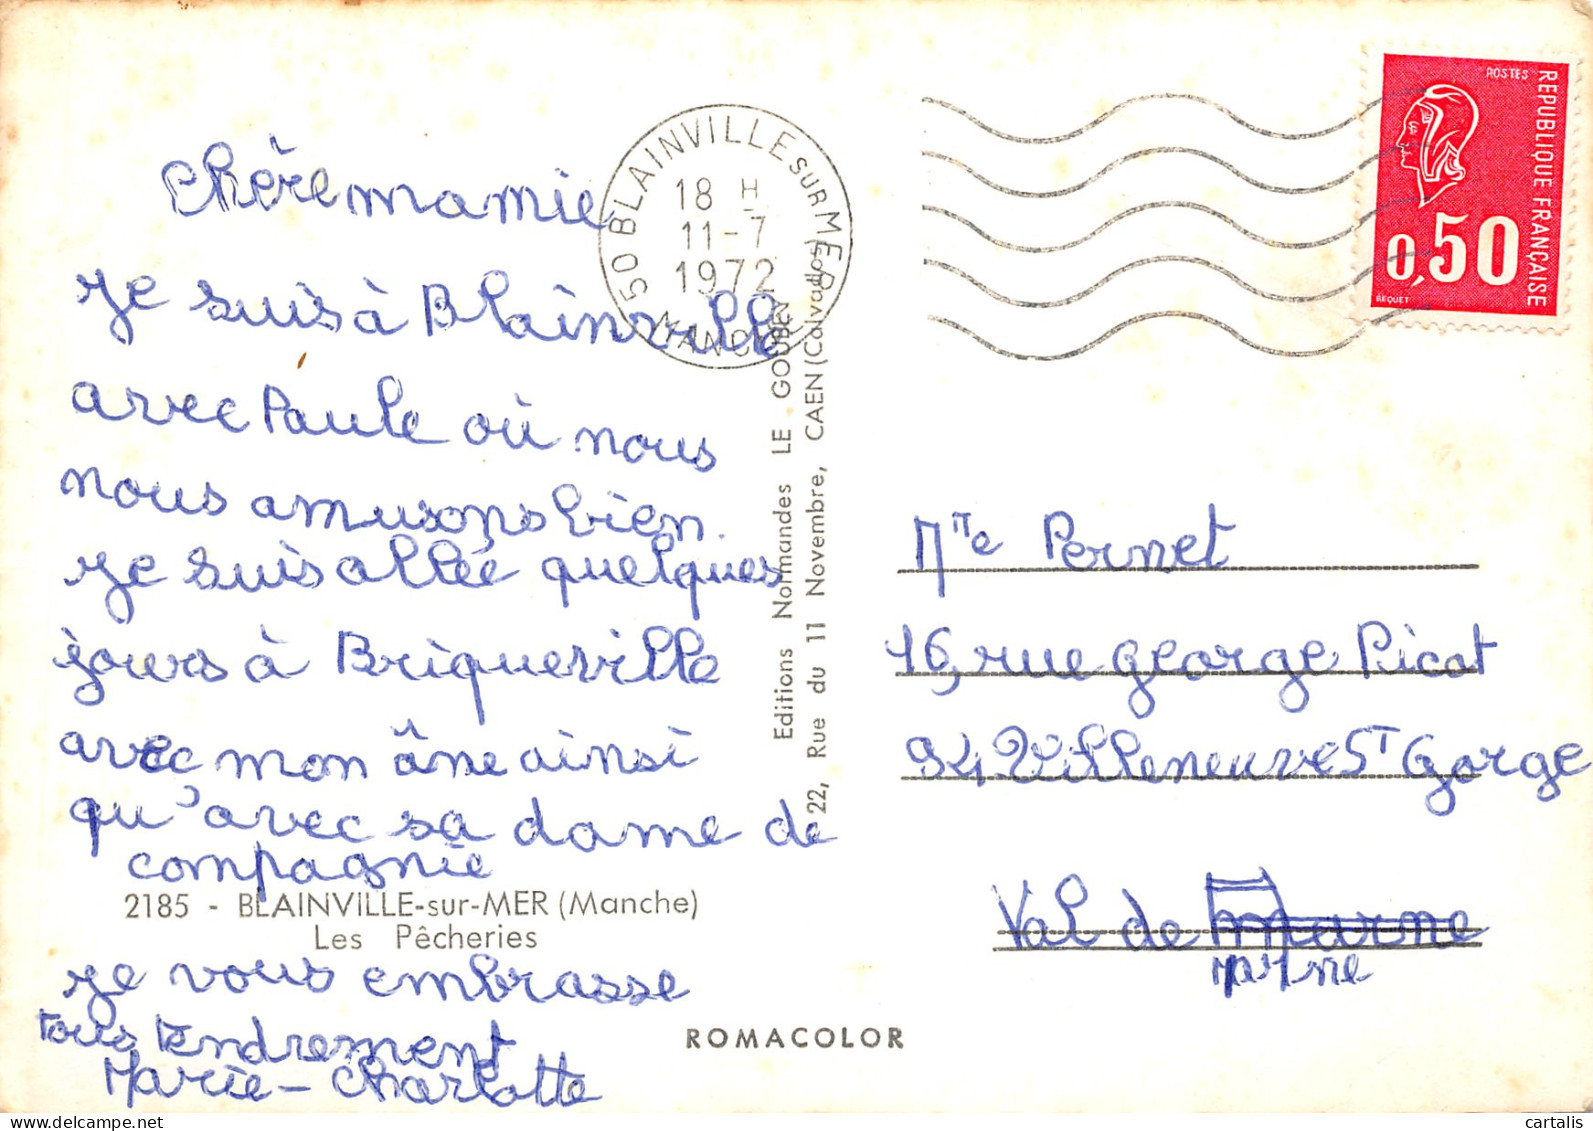 Chère mamie
je suis à Blainville
avec Paule où nous
nous amusons bien.
je suis allée quelques
jours à Briqueville
avec mon âne ainsi
qu'avec sa dame de
compagnie
2185 - BLAINVILLE-sur-MER (Manche)
Les Pêcheries
je vous embrasse
tous tendrement
Marie-Charlotte
50 BLAINVILLE SUR MER
18 H
11-7
1972
MANCHE
Editions Normandes LE GOUBEY
22, Rue du 11 Novembre, CAEN (Calvados)
ROMACOLOR
POSTES
REPUBLIQUE FRANÇAISE
0,50
BEQUET
Mme Pernet
16, rue george Picot
94 Villeneuve St Gorge
Val de marne
Marne
cartalis
www.delcampe.net